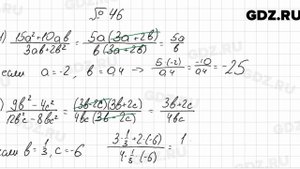 № 46
GDZ.RU
1) (15a²+10ab)/(3ab+2b²) = (5a(3a+2b))/(b(3a+2b)) = 5a/b
если a=-2, b=0,4 → (5·(-2))/0,4 = -10/0,4 = -25
) (9b²-4c²)/(12b²c-8bc²) = ((3b-2c)(3b+2c))/(4bc(3b-2c)) = (3b+2c)/(4bc)
если b=1/3, c=-6 (3·1/3+2·(-6))/(4·1/3·(-6)) = 1
GDZ.RU